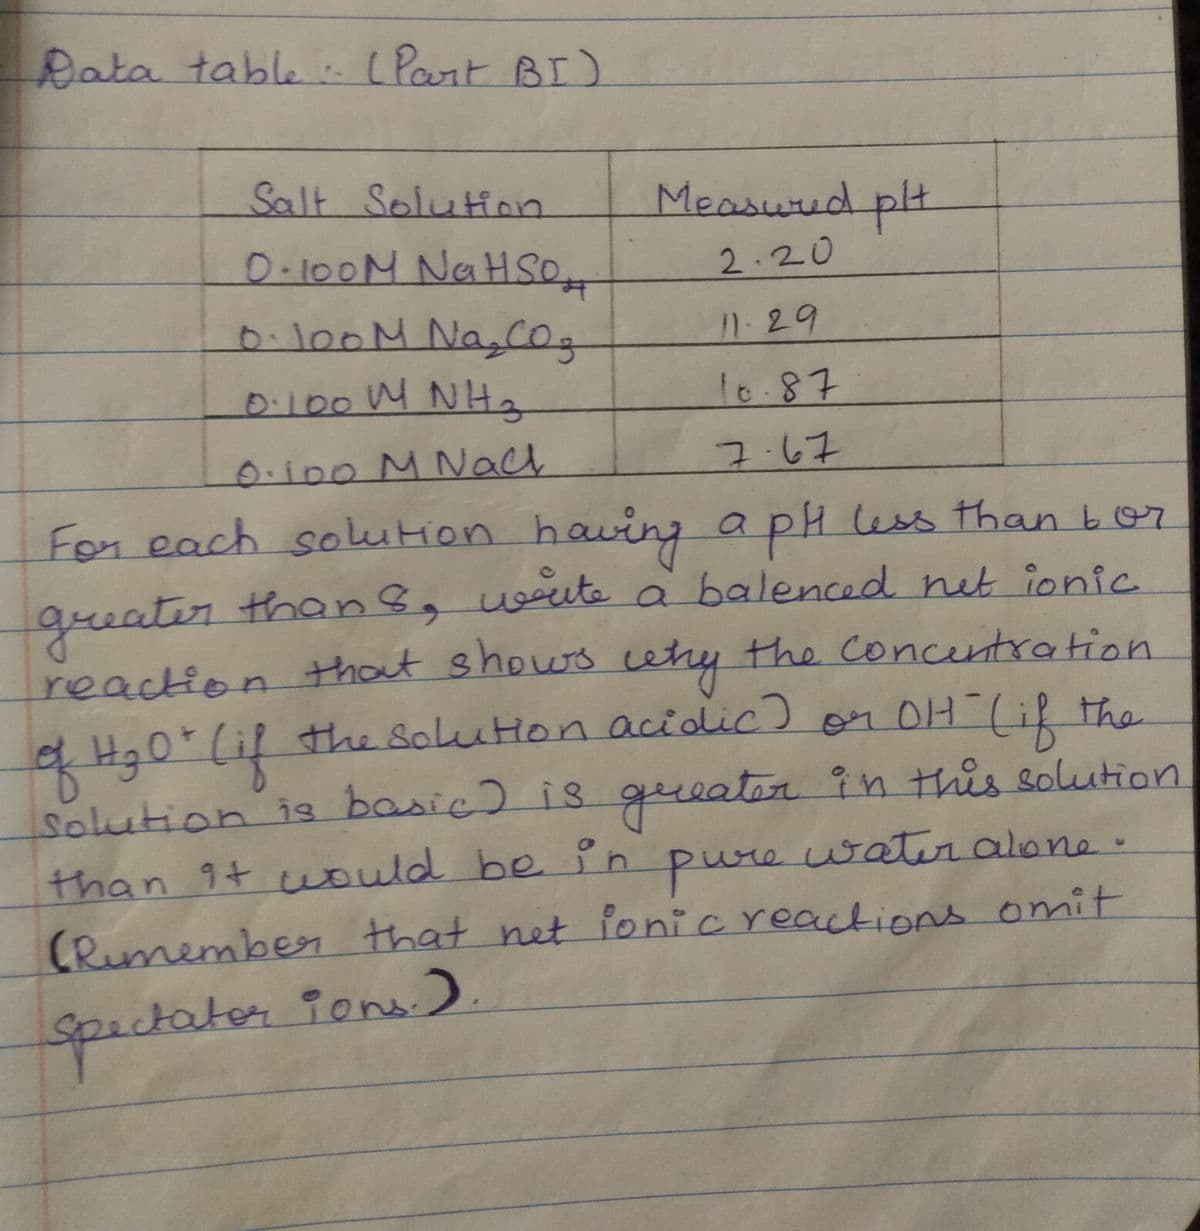 Data table :- (Part BI)
Salt Solution Measured pH
0.100M NaHSO4 2.20
0.100M Na2CO3 11.29
0.100 M NH3 10.87
0.100 M NaCl 7.67
For each solution having a pH less than 6 or
greater than 8, write a balenced net ionic
reaction that shows why the concentration
of H3O+ (if the solution acidic) or OH- (if the
solution is basic) is greater in this solution
than it would be in pure water alone.
(Rumember that net ionic reactions omit
spectater ions.).